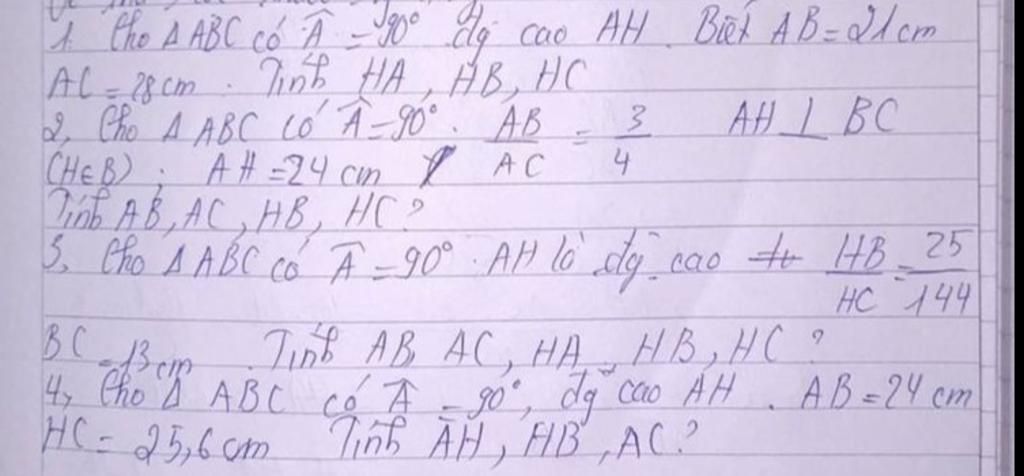 1. Cho Δ ABC có Â = 90° đg cao AH. Biết AB = 21 cm
AC = 28 cm. Tính HA, HB, HC
2, Cho Δ ABC có Â = 90°. AB/AC = 3/4 AH ⊥ BC
(H∈B); AH = 24 cm
Tính AB, AC, HB, HC?
3, Cho Δ ABC có Â = 90°. AH là đg cao HB/HC = 25/144
BC = 13 cm Tính AB, AC, HA, HB, HC?
4, Cho Δ ABC có Â = 90°, đg cao AH. AB = 24 cm
HC = 25,6 cm Tính AH, HB, AC?